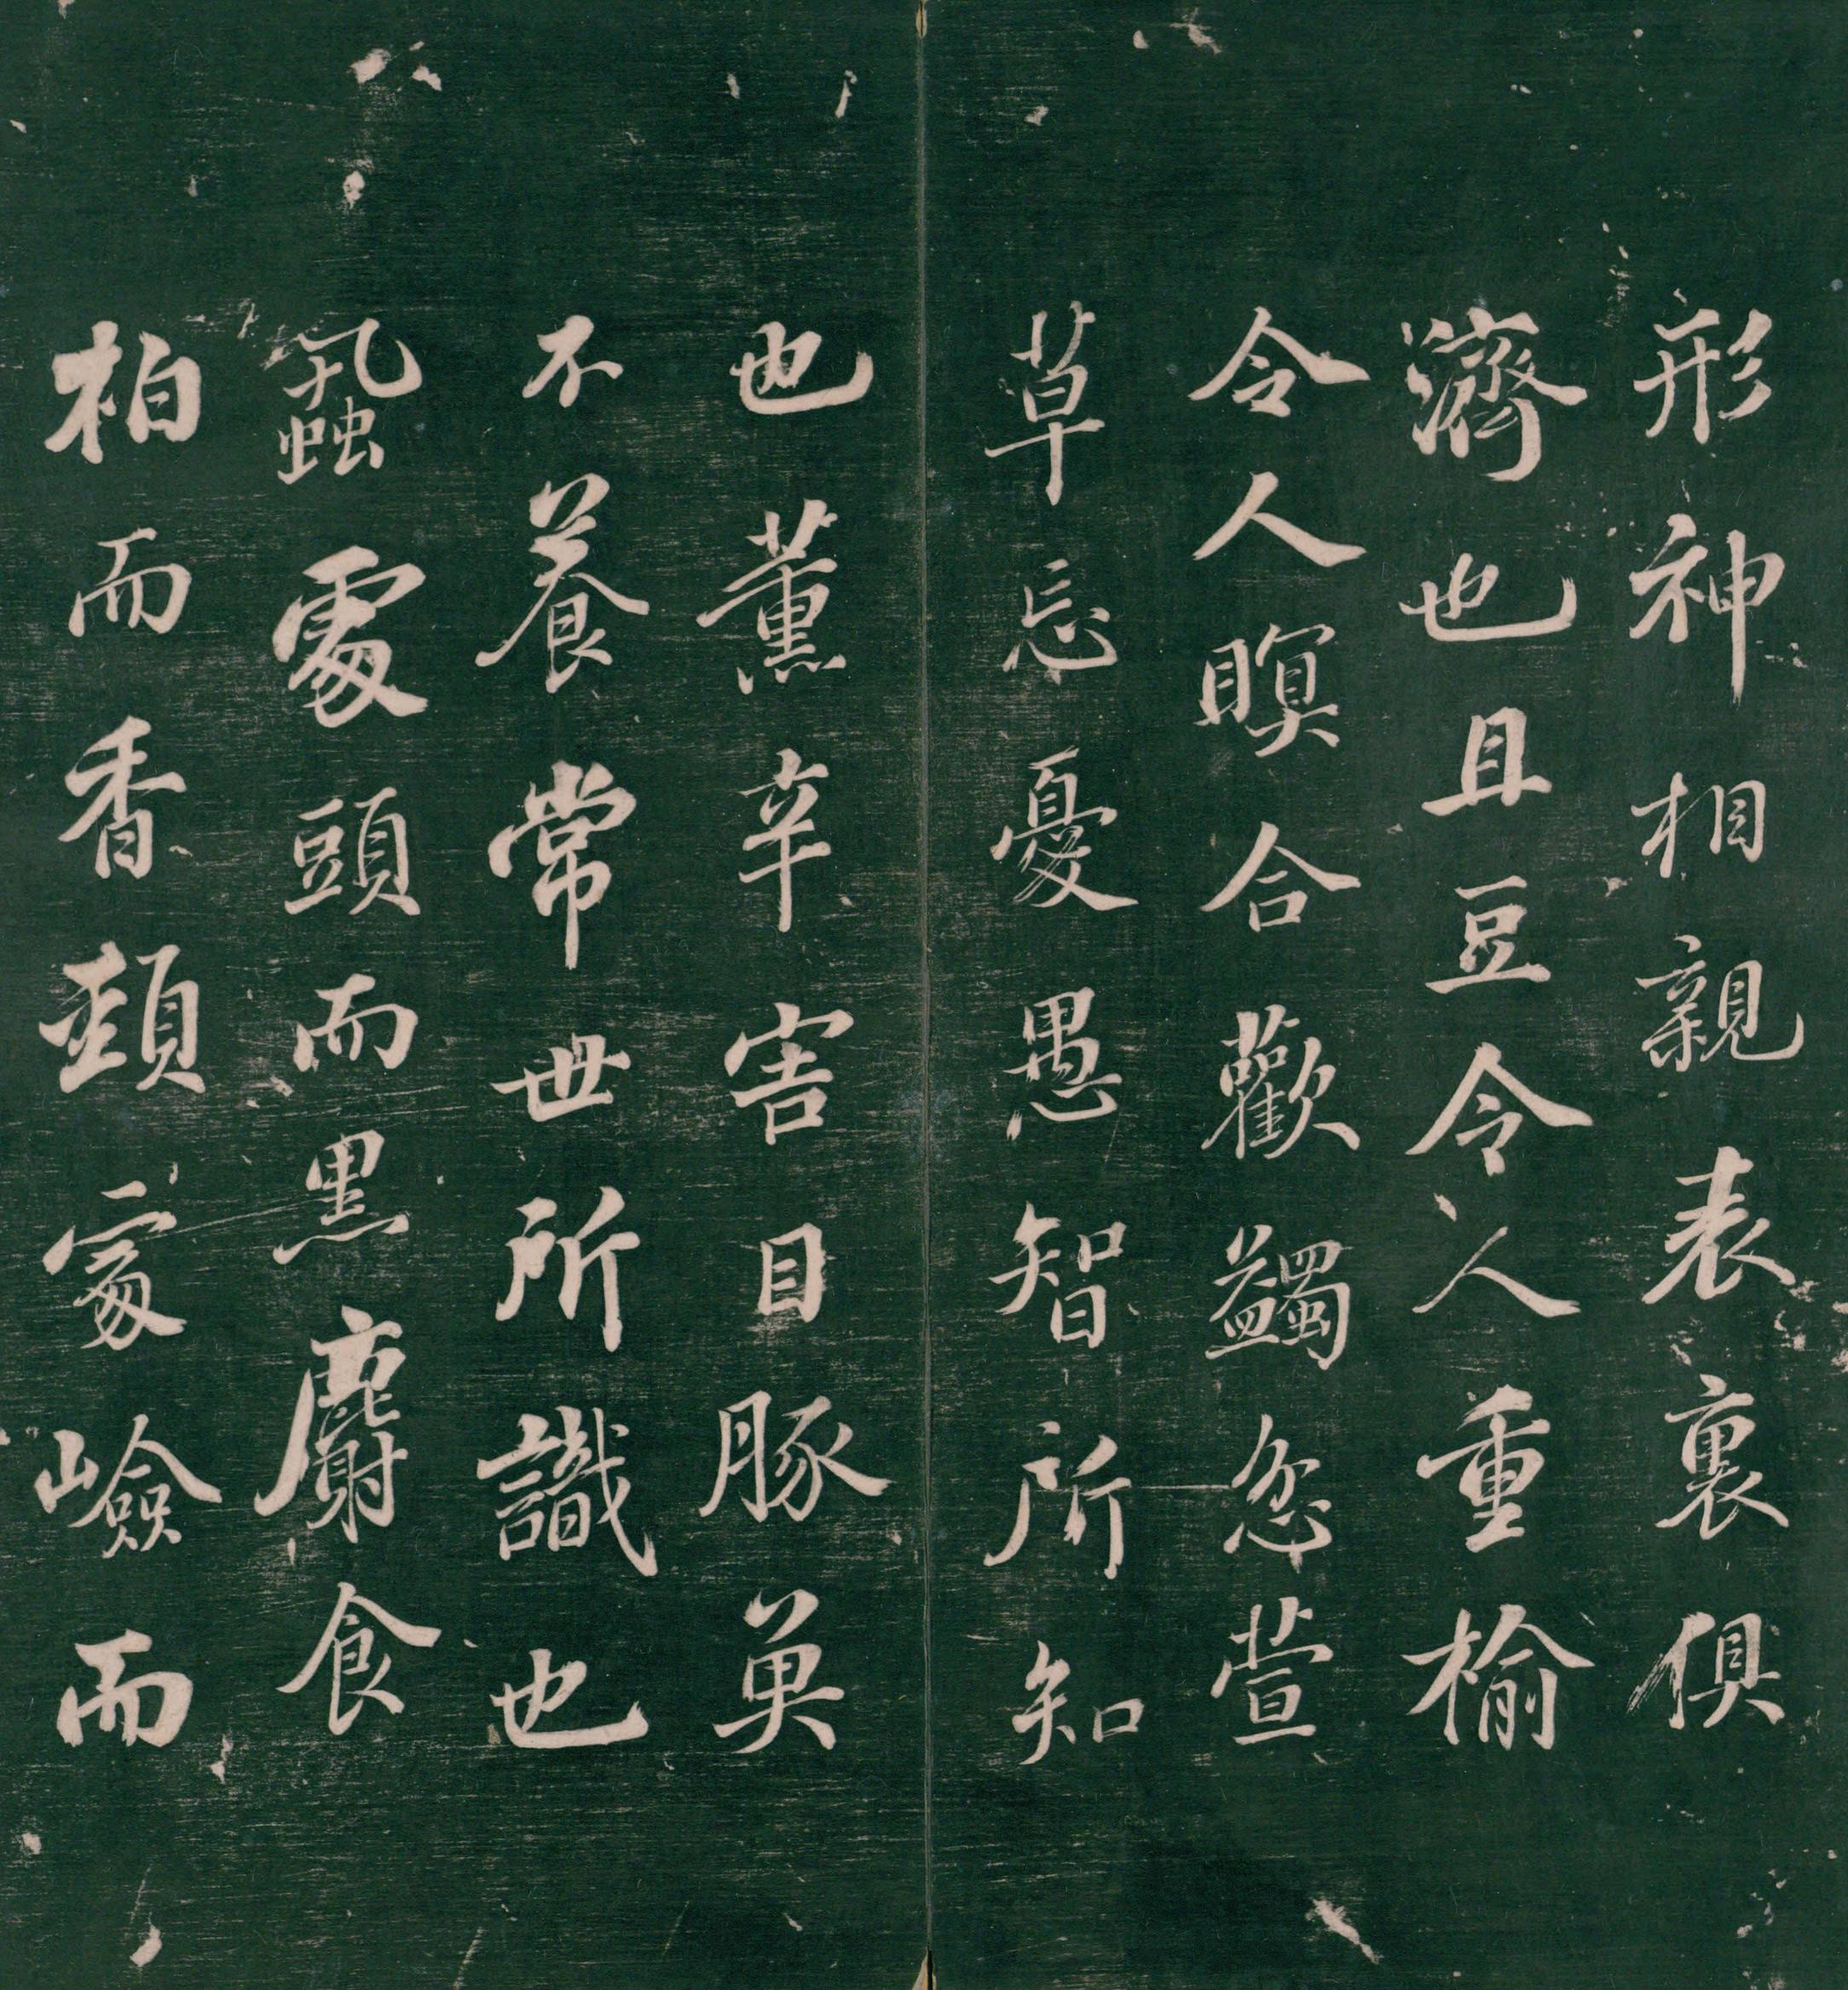 形神相親表裏俱
濟也且豆令人重榆
令人瞑合歡蠲忿萱
草忘憂愚智所知
也薰辛害目豚魚
不養常世所識也
蝨處頭而黑麝食
柏而香頸處嶮而